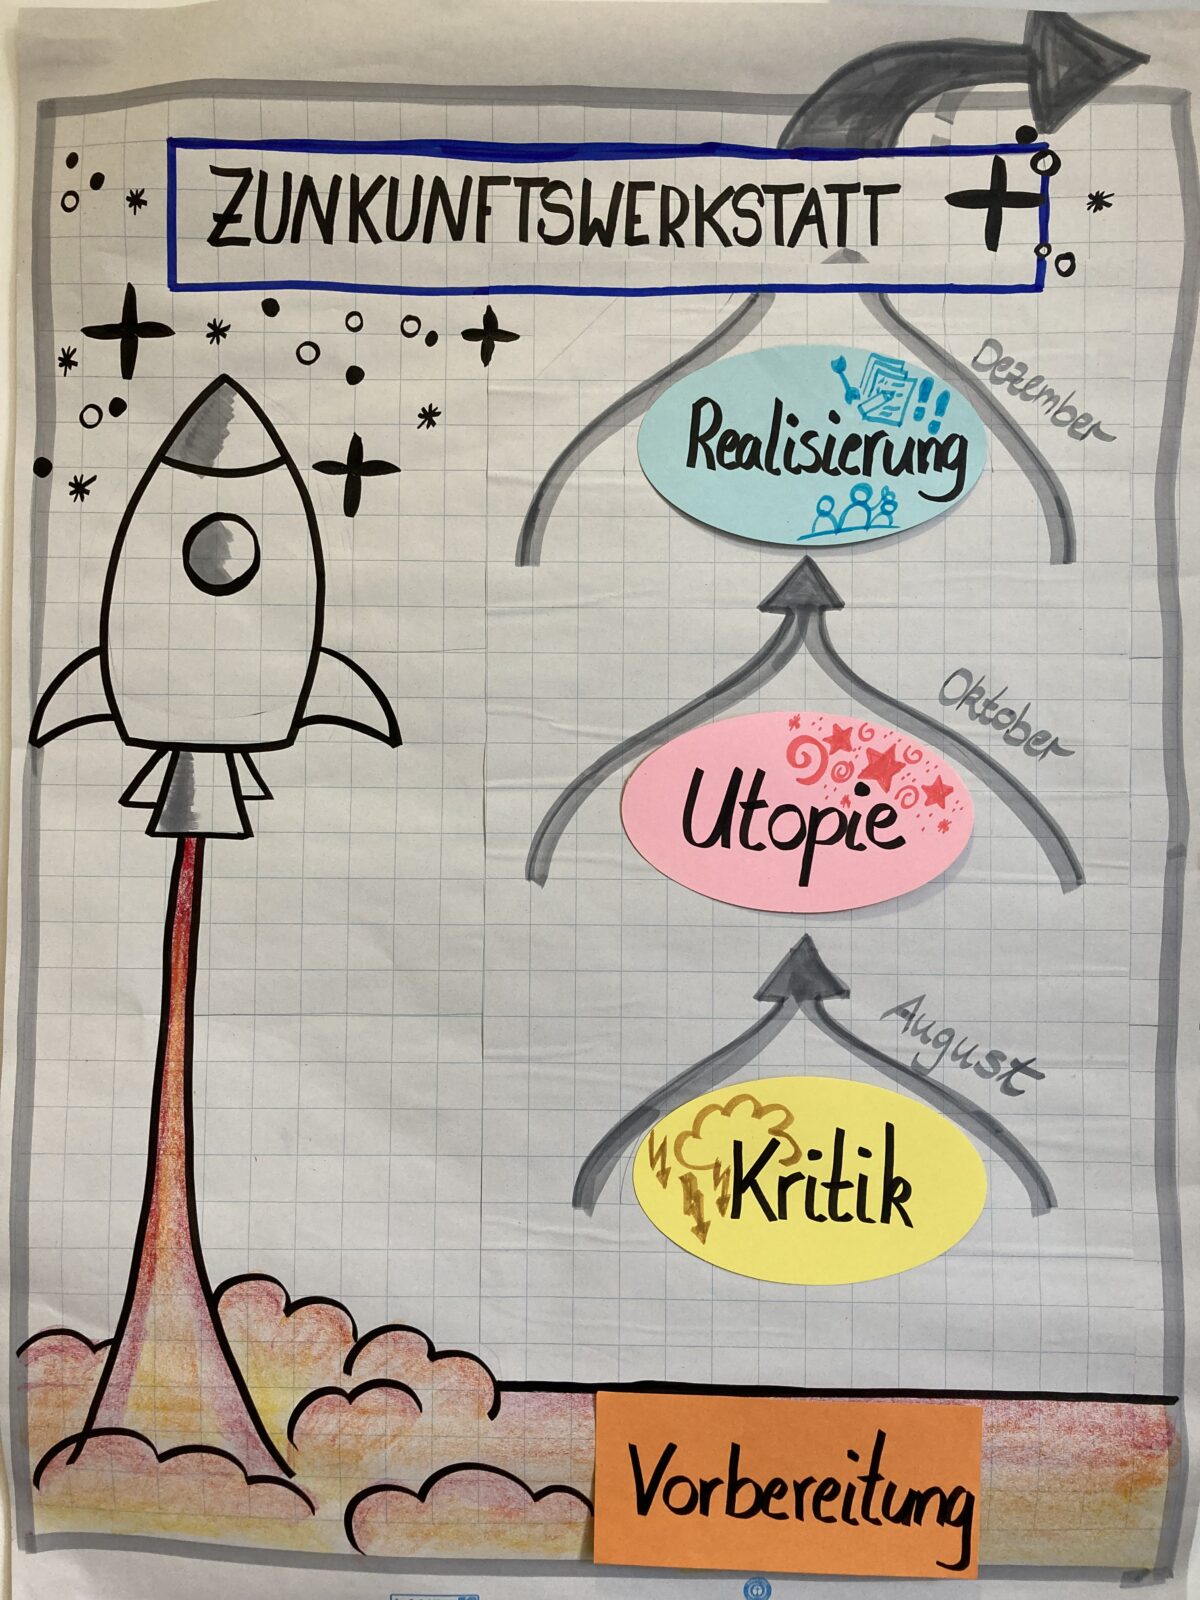 ZUNKUNFTSWERKSTATT
Dezember
Realisierung
Oktober
Utopie
August
Kritik
Vorbereitung